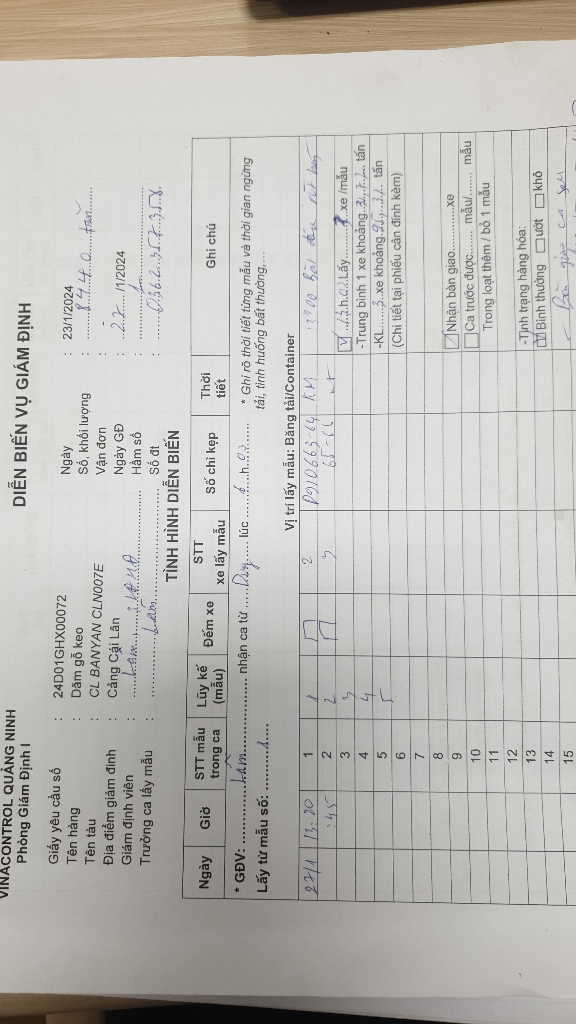 VINACONTROL QUẢNG NINH
Phòng Giám Định I
DIỄN BIẾN VỤ GIÁM ĐỊNH
Giấy yêu cầu số : 24D01GHX00072 Ngày : 23/1/2024
Tên hàng : Dăm gỗ keo Số, khối lượng : 8440 tấn
Tên tàu : CL BANYAN CLN007E Vận đơn : -
Địa điểm giám định : Cảng Cái Lân Ngày GĐ : 22/1/2024
Giám định viên : Lam Hầm số : 1
Trưởng ca lấy mẫu : Lam Số đt : 0362.357.358
TÌNH HÌNH DIỄN BIẾN
Ngày Giờ STT mẫu trong ca Lũy kế (mẫu) Đếm xe STT xe lấy mẫu Số chì kẹp Thời tiết Ghi chú
* GĐV: Lâm nhận ca từ Duy lúc h * Ghi rõ thời tiết từng mẫu và thời gian ngừng
Lấy từ mẫu số: 1 tải, tình huống bất thường,...
Vị trí lấy mẫu: Băng tải/Container
22/1 13:20 1 1 2 D910663-64
:45 2 2 3 65-66
3 3 h Lấy xe /mẫu
4 4 -Trung bình 1 xe khoảng tấn
5 5 -KL 3 xe khoảng tấn
6 (Chi tiết tại phiếu cân đính kèm)
7
8
9 Nhận bàn giao xe
10 Ca trước được mẫu/ mẫu
11 Trong loạt thêm / bỏ 1 mẫu
12
13 -Tình trạng hàng hóa:
14 Bình thường ướt khô
15 - Bàn giao ca sau